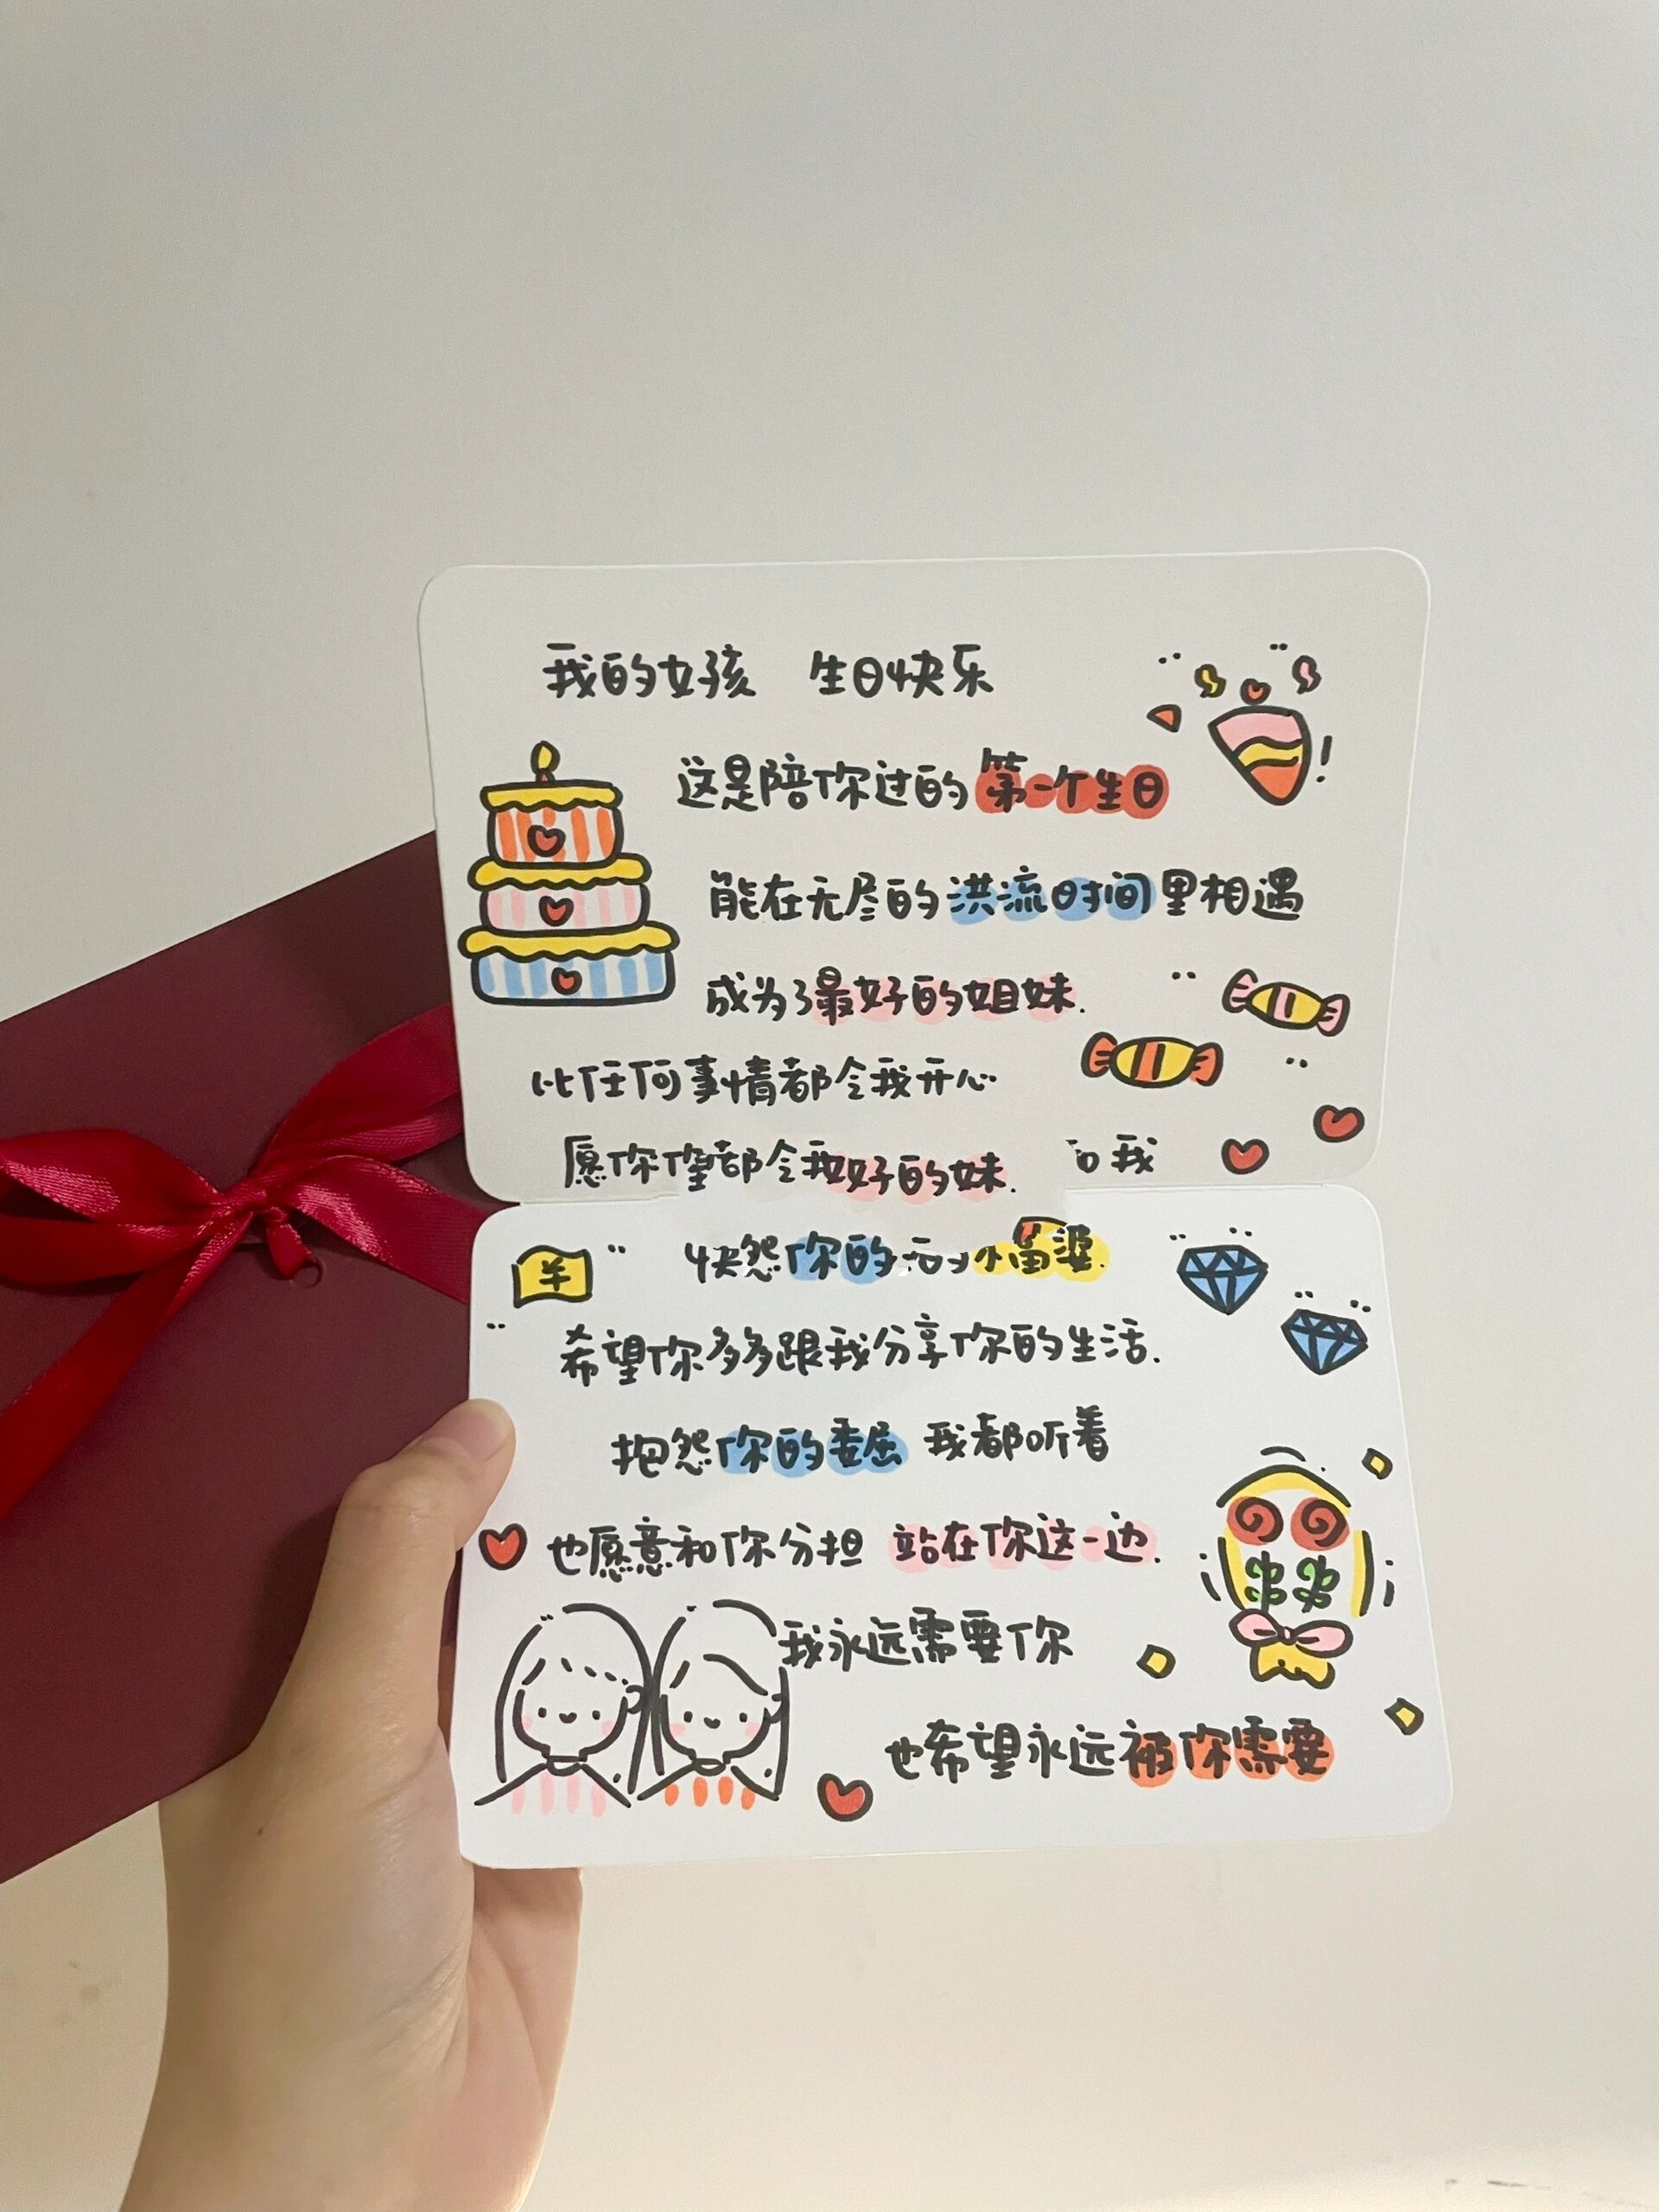 我的女孩 生日快乐
这是陪你过的第一个生日
能在无尽的洪流时间里相遇
成为了最好的姐妹.
比任何事情都令我开心
愿你 都令我 好的妹. 我
你的 小富婆.
希望你多多跟我分享你的生活.
抱怨你的委屈 我都听着
也愿意和你分担 站在你这一边.
我永远需要你
也希望永远被你需要